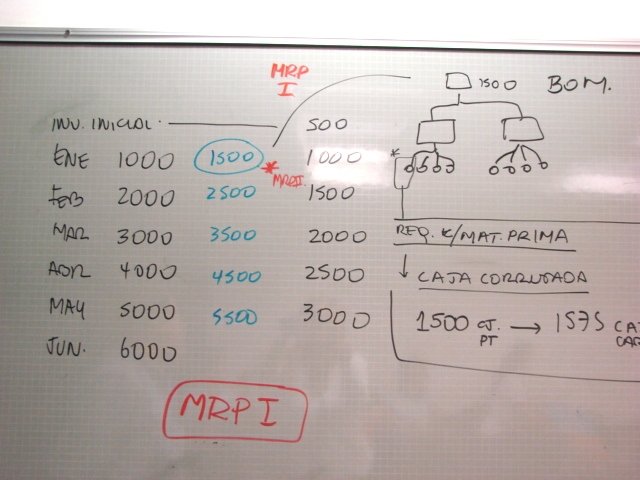 MRP
I
1500 BOM.
INV. INICIAL. 500
ENE 1000 1500 * 1000
MRPI.
FEB 2000 2500 1500
MAR 3000 3500 2000
ABR 4000 4500 2500
MAY 5000 5500 3000
JUN. 6000
MRP I
*
REQ. */MAT. PRIMA
↓ CAJA CORRUGADA
1500 CJ. PT → 1575